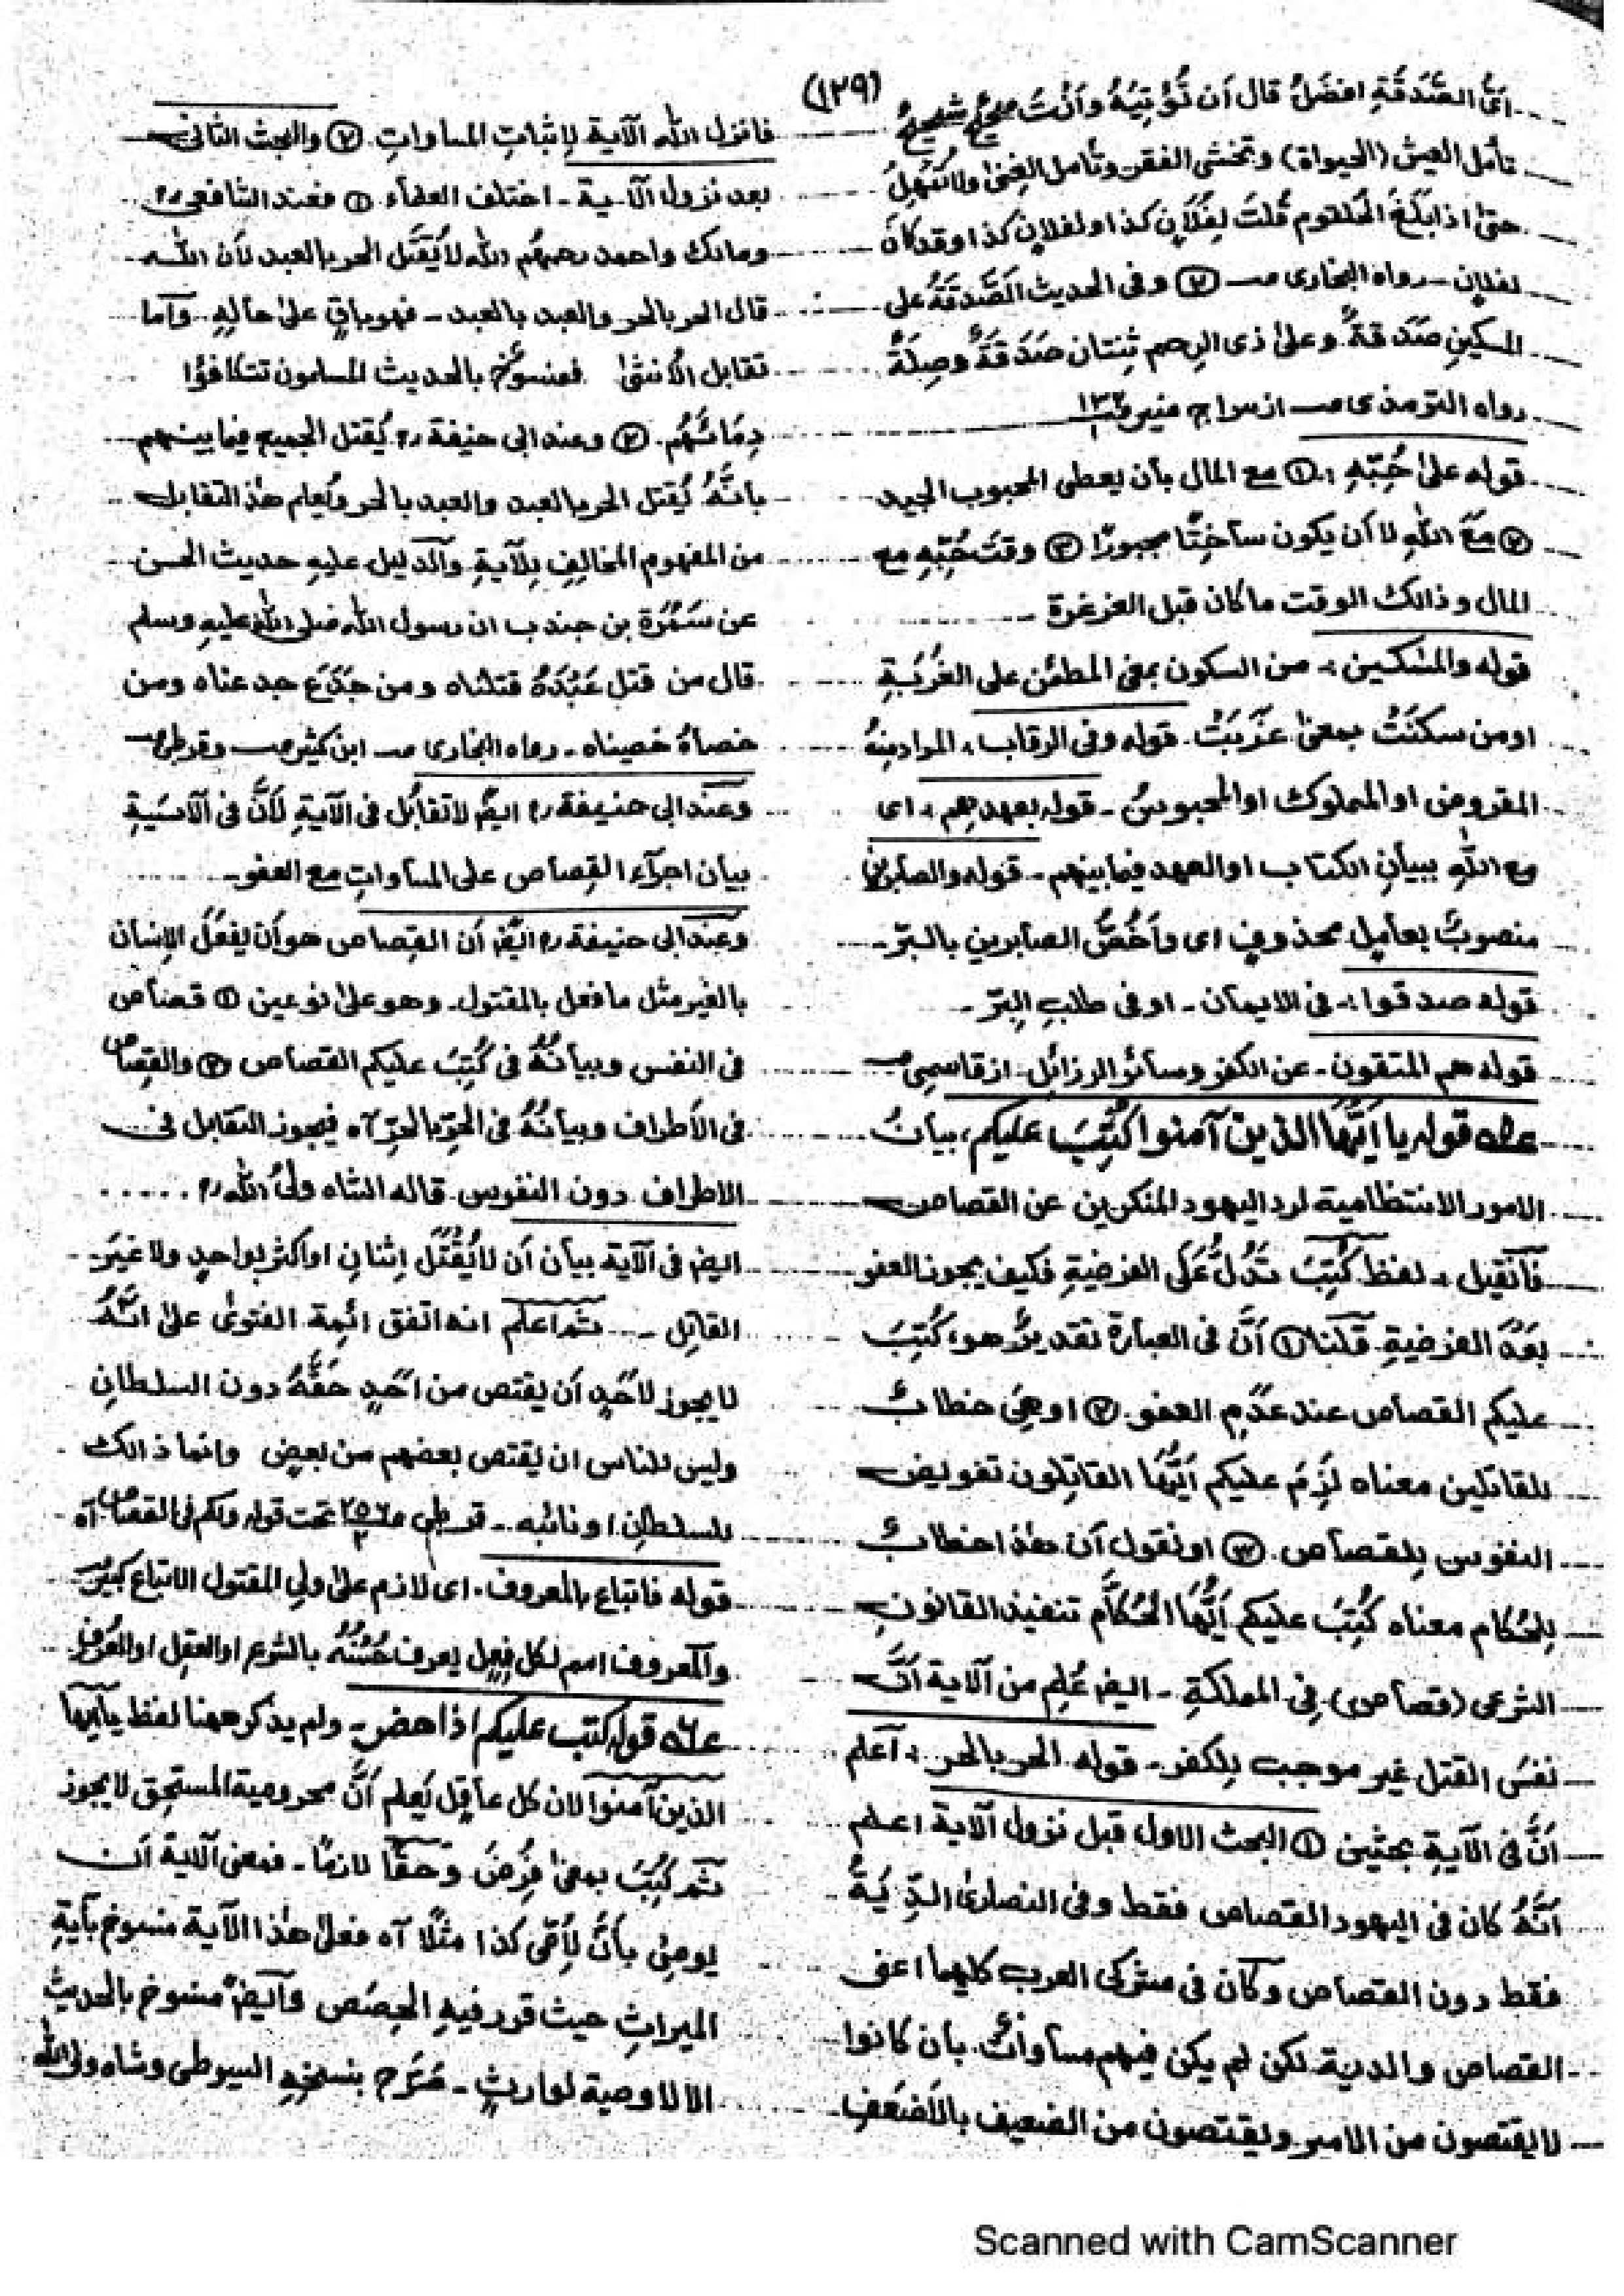 (١٢٩)
اىُّ الصَّدَقَةِ افضَلُ قال أن تُؤْتِيَهُ وأنْتَ صحيحٌ شحيحٌ
تأمل العيش (الحيواة) وتخشى الفقر وتأمل الغِنىٰ ولا تُمْهِلُ
حتىٰ اذا بَلَغَ الحُلقوم قُلتَ لِفُلَانٍ كذا ولفلانٍ كذا وقد كانَ
لفلانٍ ــ رواه البخارى صـ ②وفى الحديث الصَّدَقَةُ على
المسكينِ صَدَقةٌ وعلىٰ ذى الرحم ثِنتان صَدَقَةٌ وصِلَةٌ
رواه الترمذى صـ از سراج منير
قوله علىٰ حُبّهِ ، ① مع المال بأن يعطى المحبوب الجيد
② مَعَ اللهِ لا أن يكون ساخِتًا مجبورًا ③ وقتَ حُبّهِ مع
المال وذالك الوقت ما كان قبل الغرغرة
قوله والمسٰكين ، من السكون بمعنى المطمئن على الغُرَبَةِ
اومن سكنَتْ بمعنىٰ غَرَبَتْ۔ قوله وفى الرقاب ، المراد منهُ
المقروض او المملوك او المحبوسُ ۔ قوله بعهدهم ، اى
مع اللهِ ببيانِ الكتاب او العهد فيما بينهم ۔ قوله والصابرين
منصوبٌ بعاملٍ محذوفٍ اى وأخُصُّ الصابرين بالبرّ ۔
قوله صدقوا ، فى الايمان ۔ او فى طلبِ البِرّ ۔
قوله هم المتقون ۔ عن الكفر وسائر الرزائل ۔ از قاسمى صـ
قوله يا ايُّهَا الذين آمنوا كُتِبَ عليكم ، بيانُ
الامور الانتظامية لرد اليهود المنكرين عن القصاص
فأنقيل ، لفظ كُتِبَ تَدُلُّ عَلَى الفرضيةِ فكيف يجوز العفو
بَعْدَ الفرضيةِ ۔ قُلنا ① أنَّ فى العبارة تقديرٌ هو ، كُتِبَ
عليكم القصاص عند عدَمِ العفو ② او هِىَ خطابٌ
للقاتلين معناه لَزِمَ عليكم أيُّهَا القاتِلون تفويض
النفوس لِلقصاص ③ او نقول أن هٰذا خطابٌ
لِلحُكّام معناه كُتِبَ عليكم أيُّهَا الحُكَّام تنفيذ القانونِ
الشرعى (قصاص) فِى المملكةِ ۔ اليضـ عُلِم من الآية أنَّ
نفسَ القتل غير موجب لِلكفر ۔ قوله الحر بالحر ، اعلم
أنَّ فى الآيةِ بحثين ① البحث الاول قبل نزول الآية اعلم
أنَّهُ كان فى اليهود القصاص فقط وفى النصارىٰ الدِّيَةُ
فقط دون القصاص وكان فى مشركى العرب كليهما اعنى
القصاص والدية لكن لم يكن فيهم مساواتٌ ۔ بأن كانوا
لا يقتصون من الامير ويقتصون من الضعيف بالأضعَفِ
فانزل الله الآية لِاثباتِ المساواتِ ② والبحث الثانى
بعد نزول الآية ۔ اختلف العلمآء ① فعند الشافعى رح
ومالك واحمد رحمهُم الله لا يُقتَل الحر بالعبد لأن الله
قال الحر بالحر والعبد بالعبد ۔ فهو باقٍ علىٰ حالِهِ ۔ وأما
تقابل الأنثىٰ فمنسوخٌ بالحديث المسلمون تتكافؤا
دِمَائهُم ② وعند ابى حنيفة رح يُقتل الجميع فيما بينهم
بأنَّهُ يُقتل الحر بالعبد والعبد بالحر ويُعلم هٰذ التقابل
من المفهوم المخالِفِ لِلآيةِ والدليل عليهِ حديث الحسن
عن سَمُرَة بن جندب ان رسول الله صلى الله عليهِ وسلم
قال من قتل عَبْدَهُ قتلناه ومن جَدَعَ جدعناه ومن
خصاهُ خصيناه ۔ رواه البخارى صـ ابن كثير صـ وقرطبى صـ
وعند ابى حنيفة رح ايضـ لا تقابُل فى الآيةِ لأنَّ فى الآيةِ
بيان اجرآء القِصاص على المساواتِ مع العفو ۔
وعند ابى حنيفة رح ايضـ أن القِصاص هو أن يفعلَ الإنسان
بالغير مثل ما فعل بالمقتول ۔ وهو علىٰ نوعين ① قصاص
فى النفس وبيانُهُ فى كُتِبَ عليكم القصاص ② والقِصاص
فى الأطراف وبيانُهُ فى الحُرّ بالحُرّ آه فيجوز التقابل فى
الاطراف دون النفوس ۔ قاله الشاه ولىُّ الله رح
اليضـ فى الآية بيان أن لا يُقْتَل اثنانِ او اكثر بواحدٍ ولا غيرَ
القاتِل ۔ ثم اعلم انه اتفق ائِمة الفتوىٰ علىٰ انَّهُ
لا يجوز لأحَدٍ أن يقتص من أحَدٍ حَقَّهُ دون السلطانِ
وليس للناس ان يقتص بعضهم من بعضٍ وانما ذالك
للسلطانِ او نائبه ۔ قرطبى صـ ٢٥٦/٢ تحت قوله ولكم فى القصاص آه
قوله فاتباع بالمعروف ۔ اى لازم علىٰ ولى المقتول الاتباع
والمعروف اسم لكل فِعلٍ يعرف حُسْنُهُ بالشرع او العقل او العُرف
قوله كتب عليكم اذا حضر ۔ ولم يذكر ههنا لفظ يأيُّها
الذين آمنوا لان كل عاقِلٍ يَعلم أنَّ محرومية المستحِق لا يجوز
ثم كُتِبَ بمعنىٰ فُرِضَ وحقًا لازمًا ۔ فمعنى الآية أن
يوصِى بأنَّ لِأمّى كذا مثلًا آه فعلىٰ هٰذا الآية منسوخ بآيةِ
الميراثِ حيث قرر فيهِ الحِصَص وأيضـ منسوخ بالحديثِ
الا لا وصية لوارثٍ ۔ صَرّح بنسخِهِ السيوطى وشاه ولى الله
Scanned with CamScanner